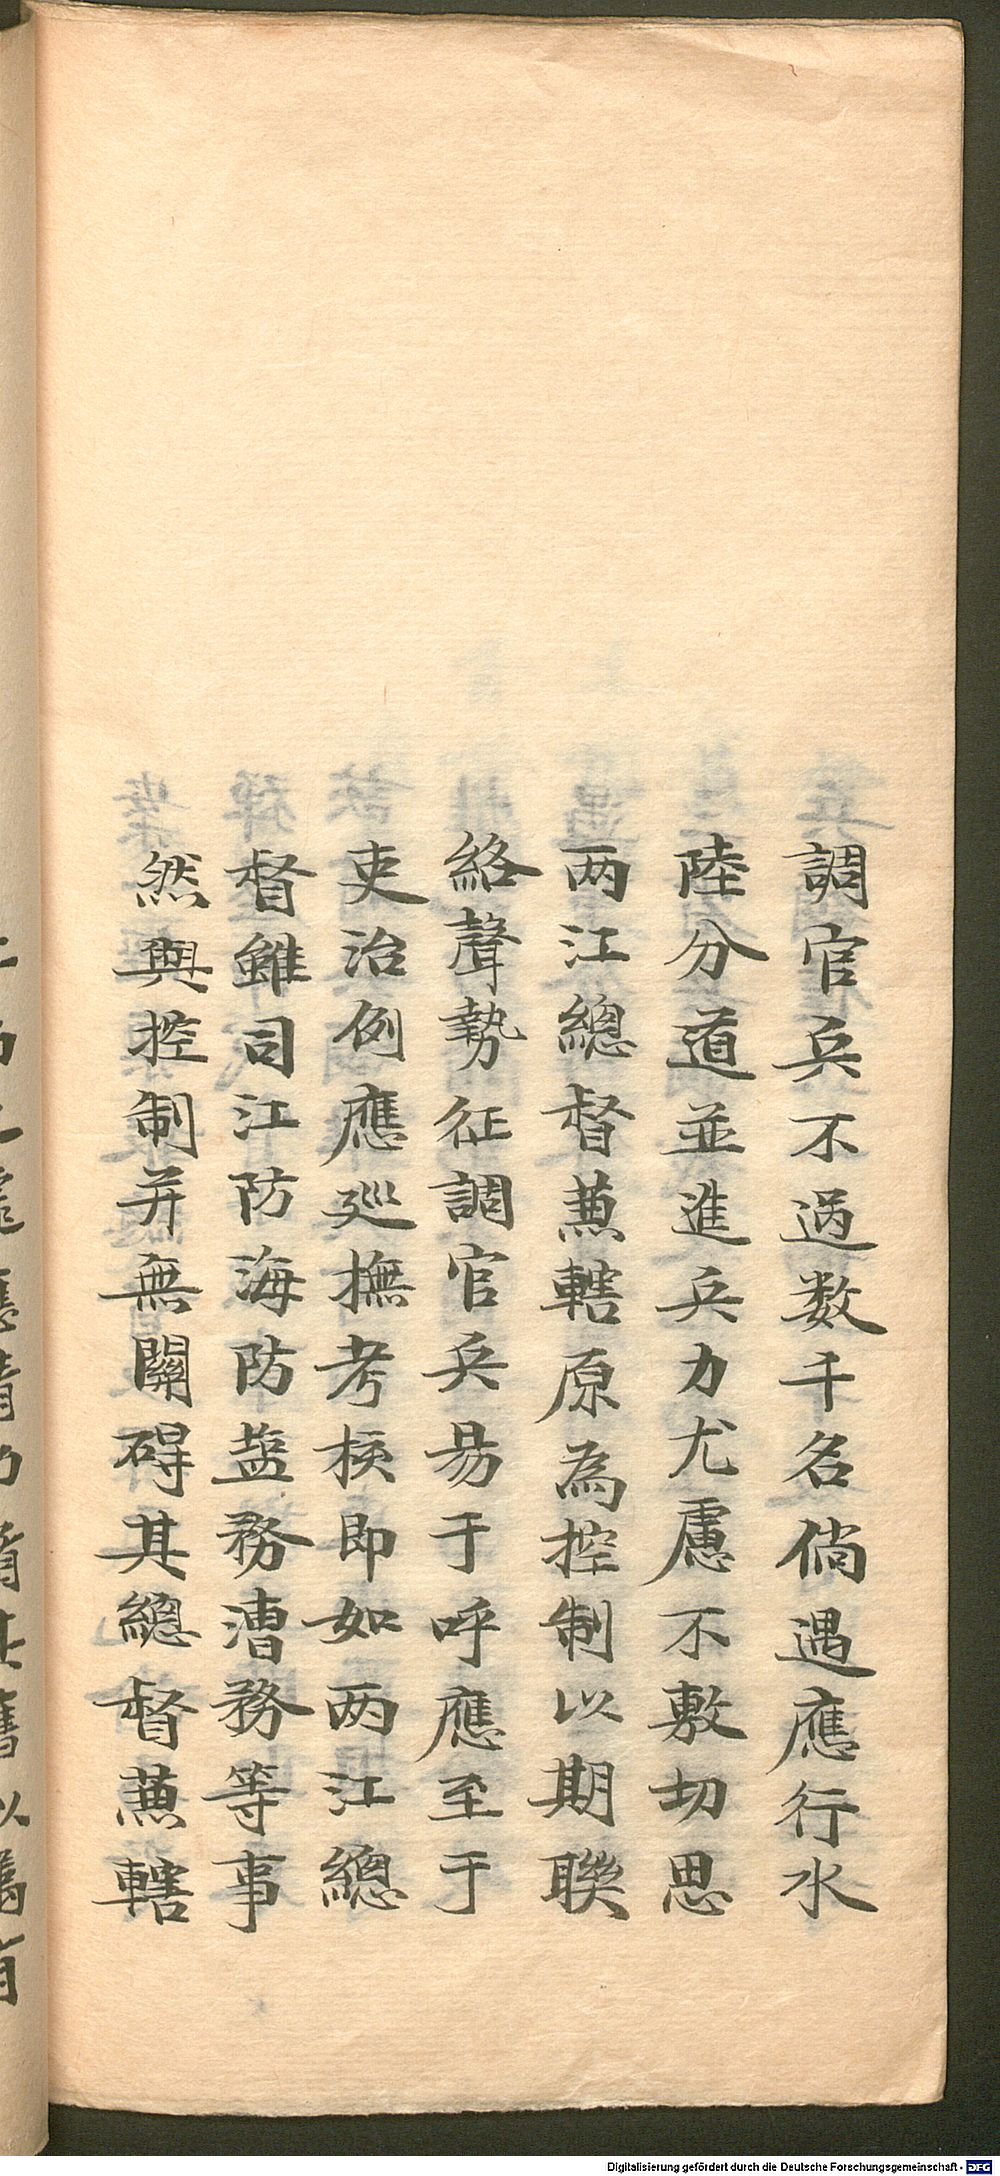 調官兵不過数千名倘遇應行水
陸分道並進兵力尤慮不敷切思
两江總督兼轄原為控制以期聯
絡聲勢征調官兵易于呼應至于
吏治例應廵撫考核即如两江總
督雖司江防海防盐務漕務等事
然與控制并無關碍其總督兼轄
Digitalisierung gefördert durch die Deutsche Forschungsgemeinschaft - DFG